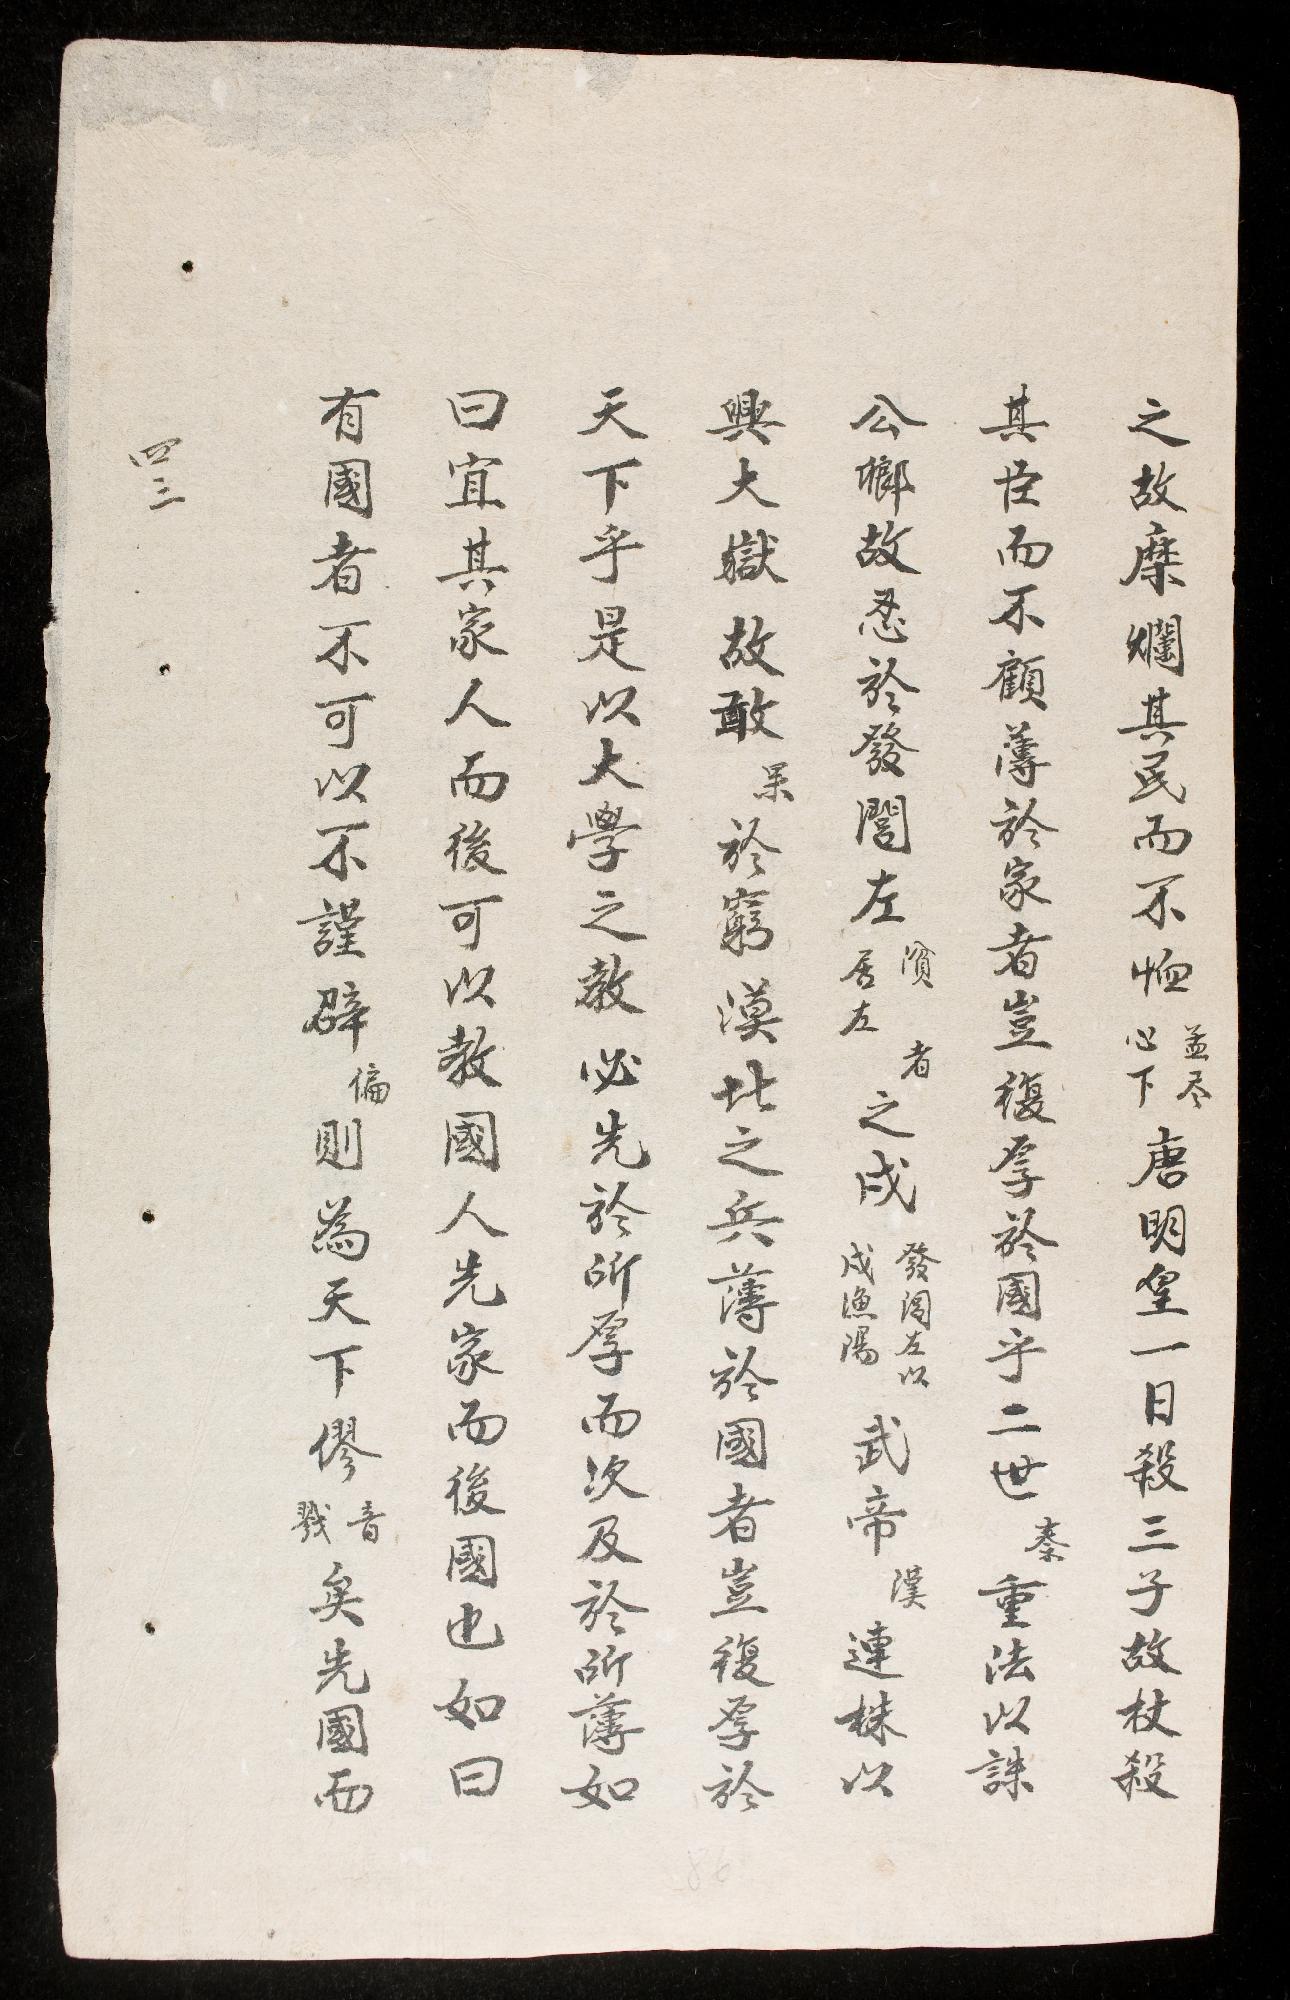 之故糜爛其民而不恤孟尽心下唐明皇一日殺三子故杖殺
其臣而不顧薄於家者豈復厚於國乎二世秦重法以誅
公鄉故忍於發閭左濱者居左之戍發閭左以戍漁陽武帝漢連株以
興大獄故敢杲於窮漠北之兵薄於國者豈復厚於
天下乎是以大學之教必先於所厚而次及於所薄如
曰宜其家人而後可以教國人先家而後國也如曰
有國者不可以不謹辟偏則為天下僇音戮矣先國而
四三
86